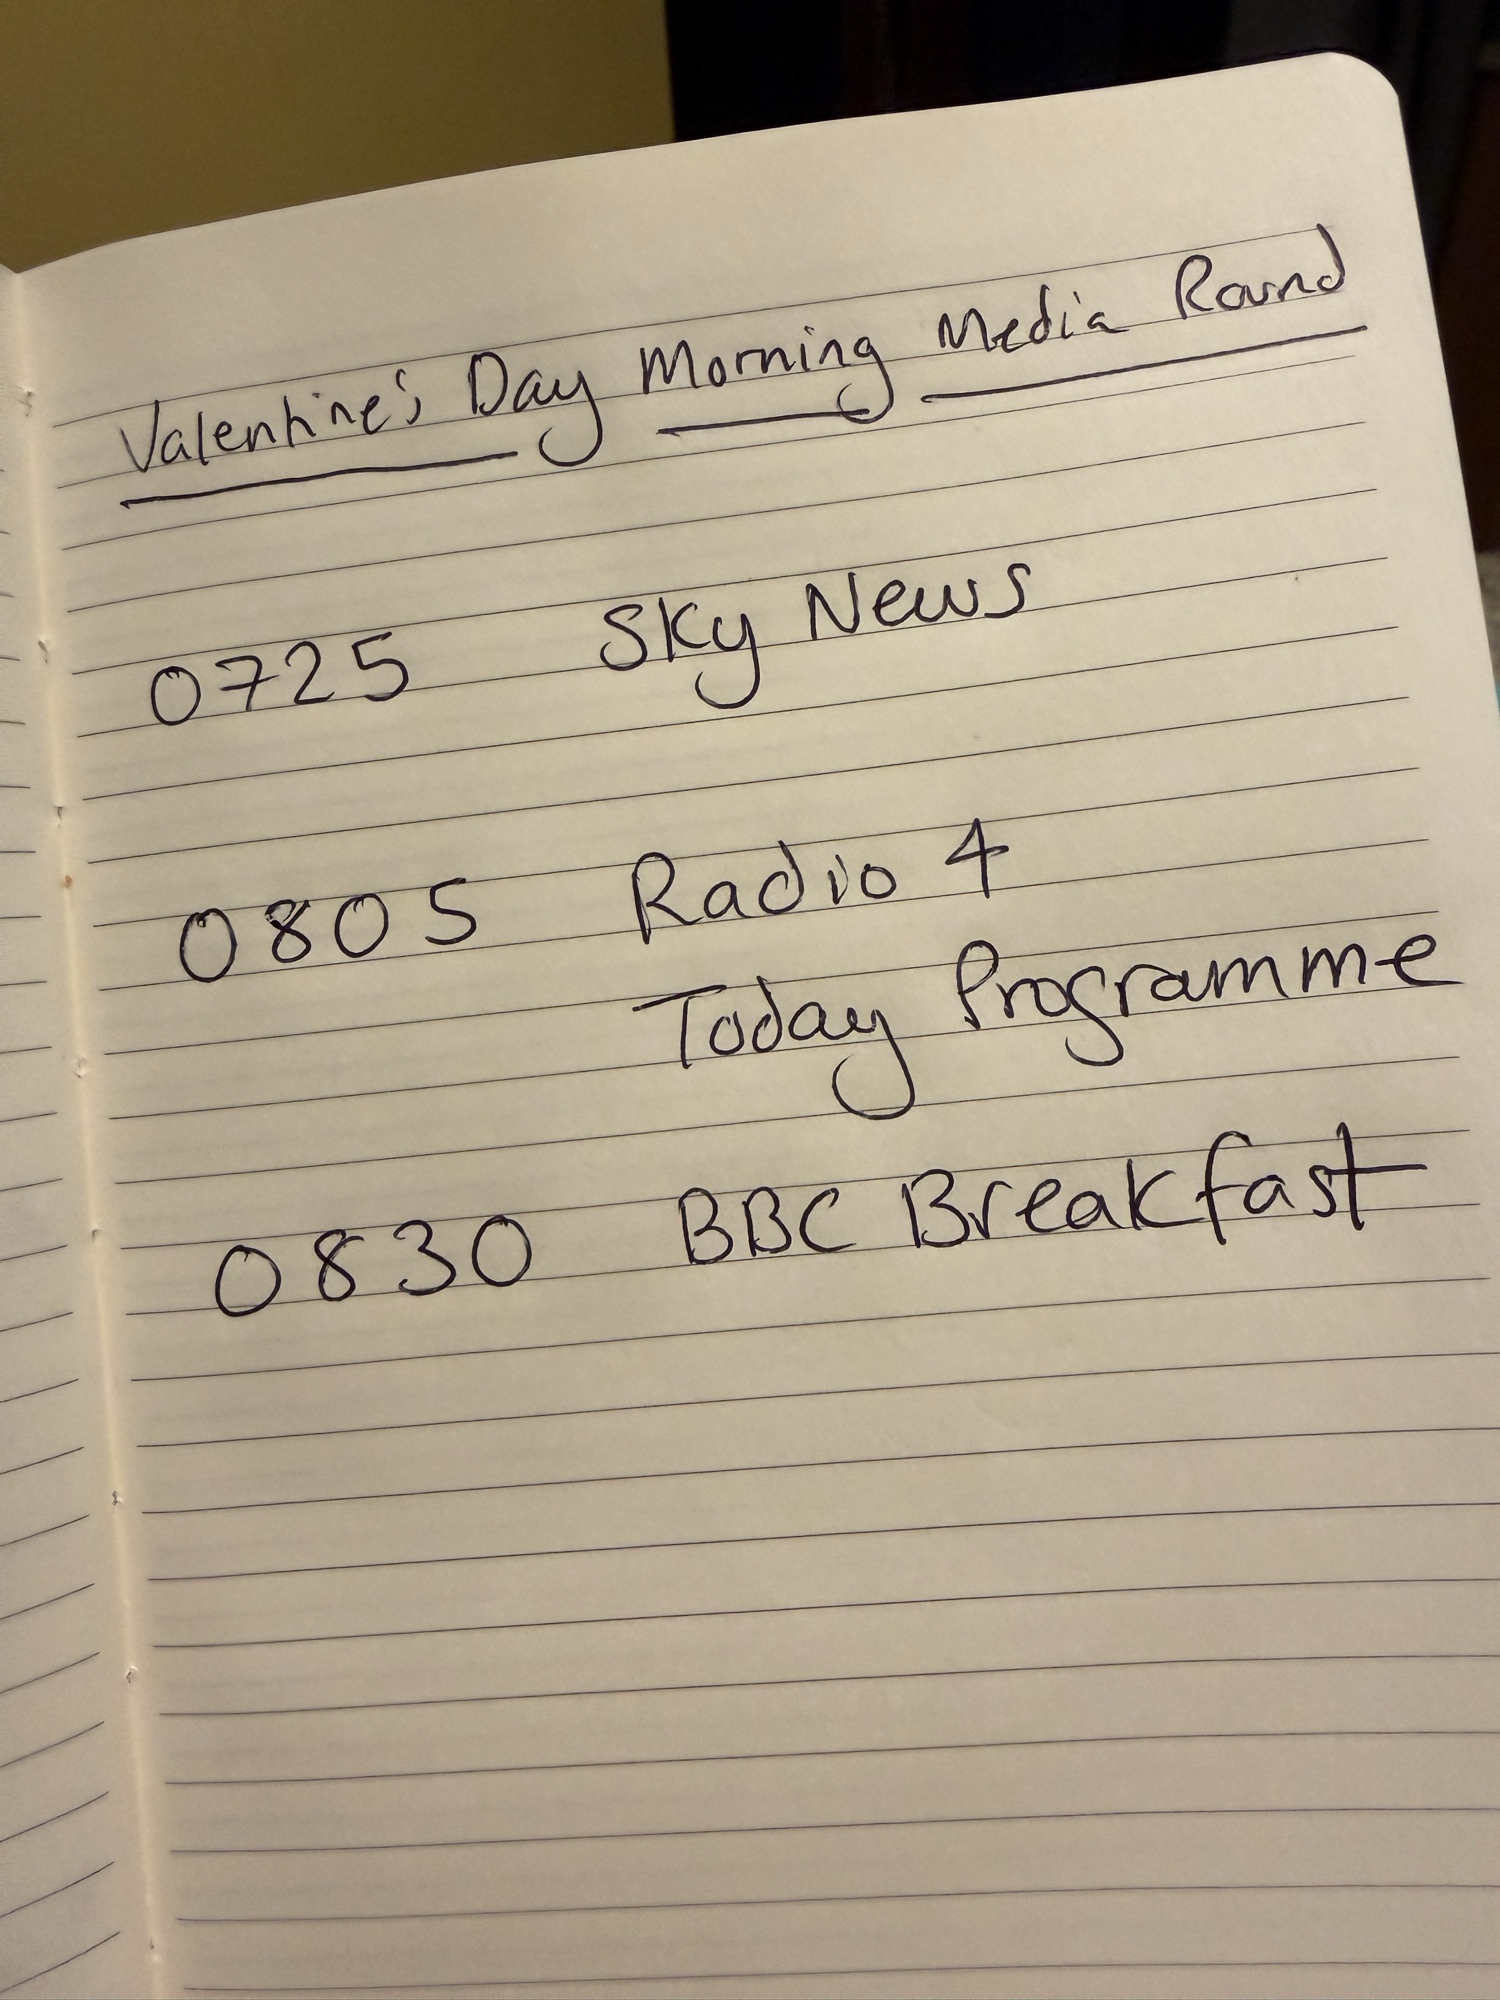 Valentine's Day Morning Media Round
0725 Sky News
0805 Radio 4
Today Programme
0830 BBC Breakfast